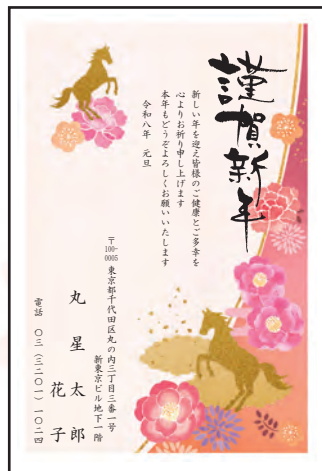 謹賀新年
新しい年を迎え皆様のご健康とご多幸を
心よりお祈り申し上げます
本年もどうぞよろしくお願いいたします
令和八年 元旦
〒100-0005
東京都千代田区丸の内三丁目三番一号
新東京ビル地下一階
丸星太郎
花子
電話 〇三(三二〇一)一〇二四